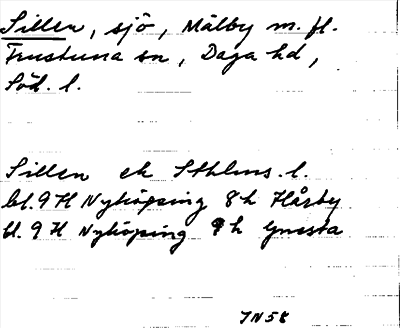 Sillen, sjö, Målby m. fl.
Frustuna sn, Daga hd,
Söd. l.
Sillen ek Sthlms. l.
bl. 9 H Nyköping 8h Hårby
bl. 9 H Nyköping 9h Gnesta
JN58